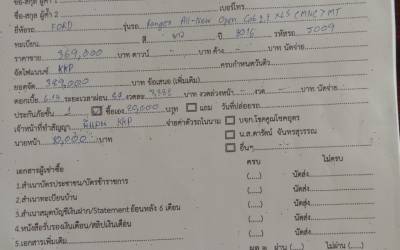 ชื่อ-สกุล ผู้ค้ำ 2 เบอร์โทร
ยี่ห้อรถ FORD รุ่นรถ Ranger All-New Open Cab 2.2 XLS (MNC) MT
ทะเบียน สี ขาว ปี 2016 รหัสรถ J009
ราคาขาย 369,000 บาท ดาวน์ บาท ค้าง บาท นัดจ่าย
จัดไฟแนนซ์ KKP ครบกำหนดวันที่
ยอดจัด 389,000 บาท ข้อเสนอ (เพิ่มเติม)
ดอกเบี้ย ระยะเวลาผ่อน 84 งวดละ บาท งวดล่วงหน้า งวด/ บาท นัดจ่าย
ประกันภัยชั้น ซื้อเอง 20,000 บาท แถม วันที่ปล่อยรถ
เจ้าหน้าที่ทำสัญญา KKP จ่ายค่าตัวรถในนาม บจก.โชคคูณโชคศุภร
นายหน้า 10,000 บาท น.ส.ดารัตน์ จันทรสุวรรณ
อื่นๆ
เอกสารผู้เช่าซื้อ ครบ ไม่ครบ
1.สำเนาบัตรประชาชน/บัตรข้าราชการ (.....) นัดส่ง
2.สำเนาทะเบียนบ้าน (.....) นัดส่ง
3.สำเนาสมุดบัญชีเงินฝาก/Statement ย้อนหลัง 6 เดือน (.....) นัดส่ง
4.หนังสือรับรองเงินเดือน/สลิปเงินเดือน (.....) นัดส่ง
5.เอกสารเพิ่มเติม (.....) นัดส่ง
ผ่าน (.....) ไม่ผ่าน